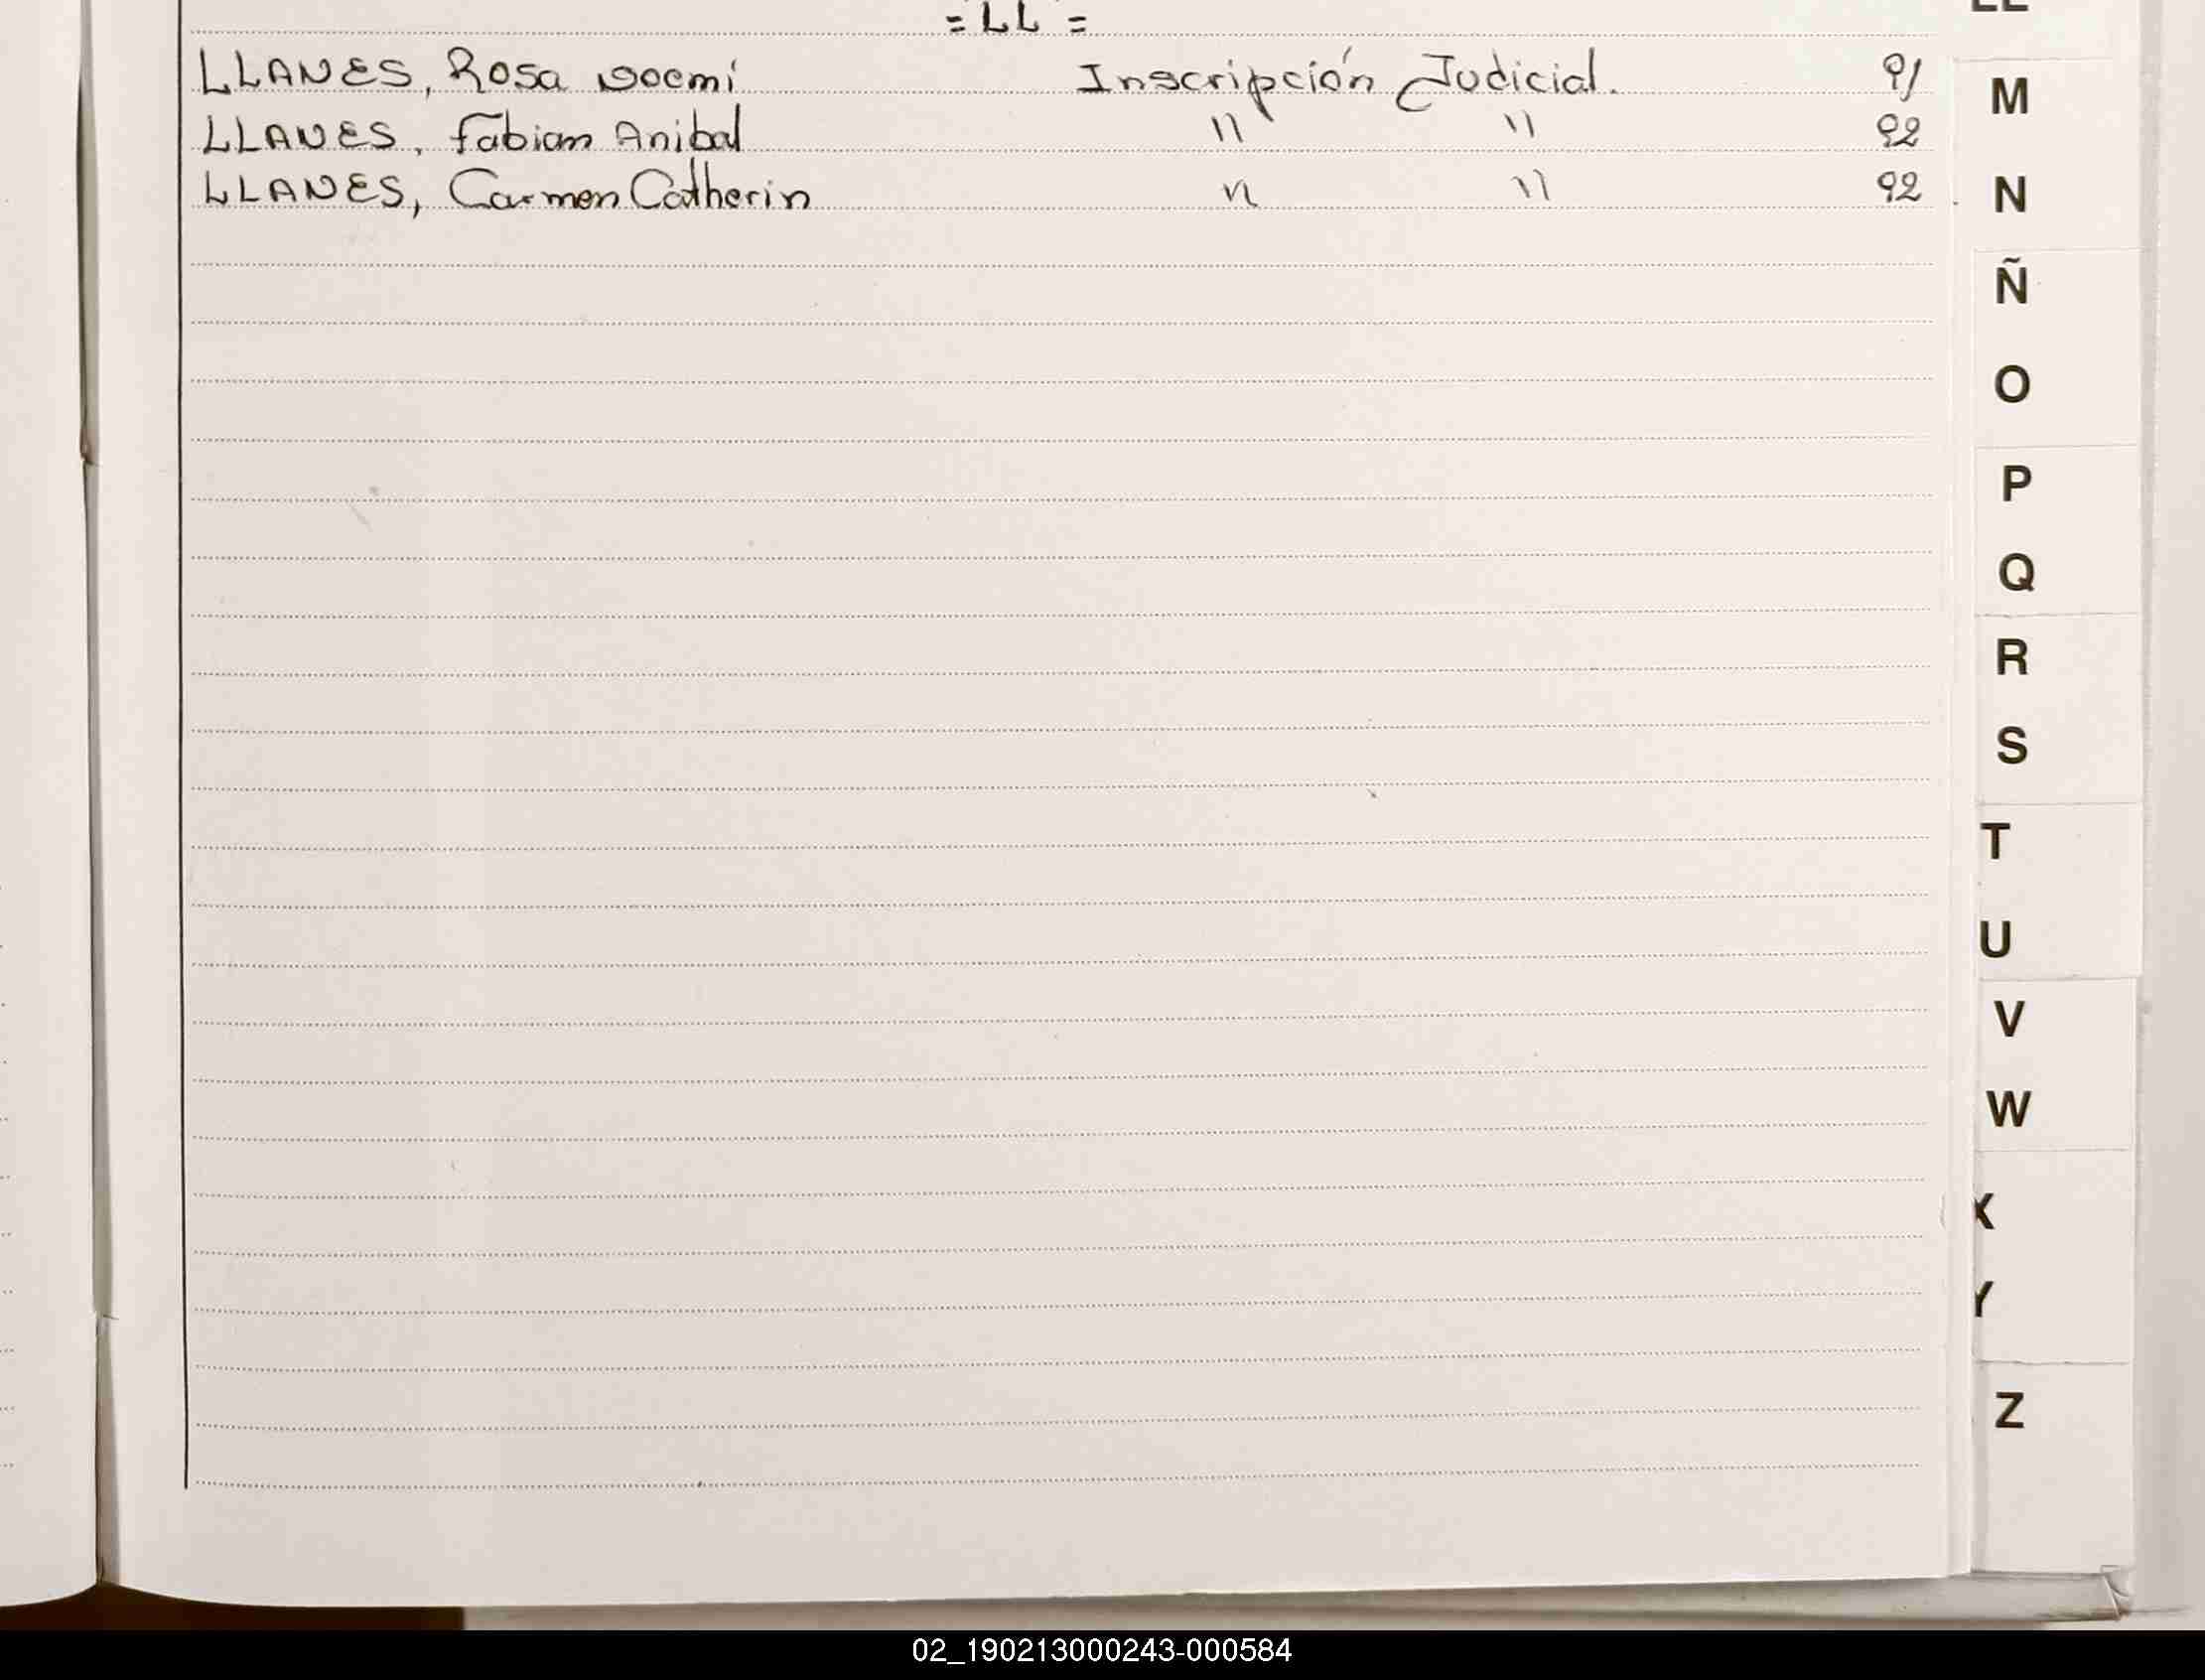 = LL =
LLANES, Rosa Noemí Inscripción Judicial. 91
LLANES, Fabian Anibal " " 92
LLANES, Carmen Catherin " " 92
M
N
Ñ
O
P
Q
R
S
T
U
V
W
X
Y
Z
02_190213000243-000584